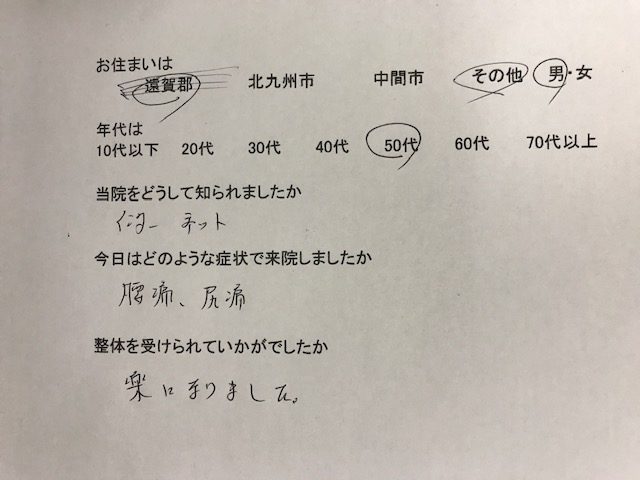 お住まいは
遠賀郡 北九州市 中間市 その他 男・女
年代は
10代以下 20代 30代 40代 50代 60代 70代以上
当院をどうして知られましたか
インターネット
今日はどのような症状で来院しましたか
腰痛、尻痛
整体を受けられていかがでしたか
楽になりました。